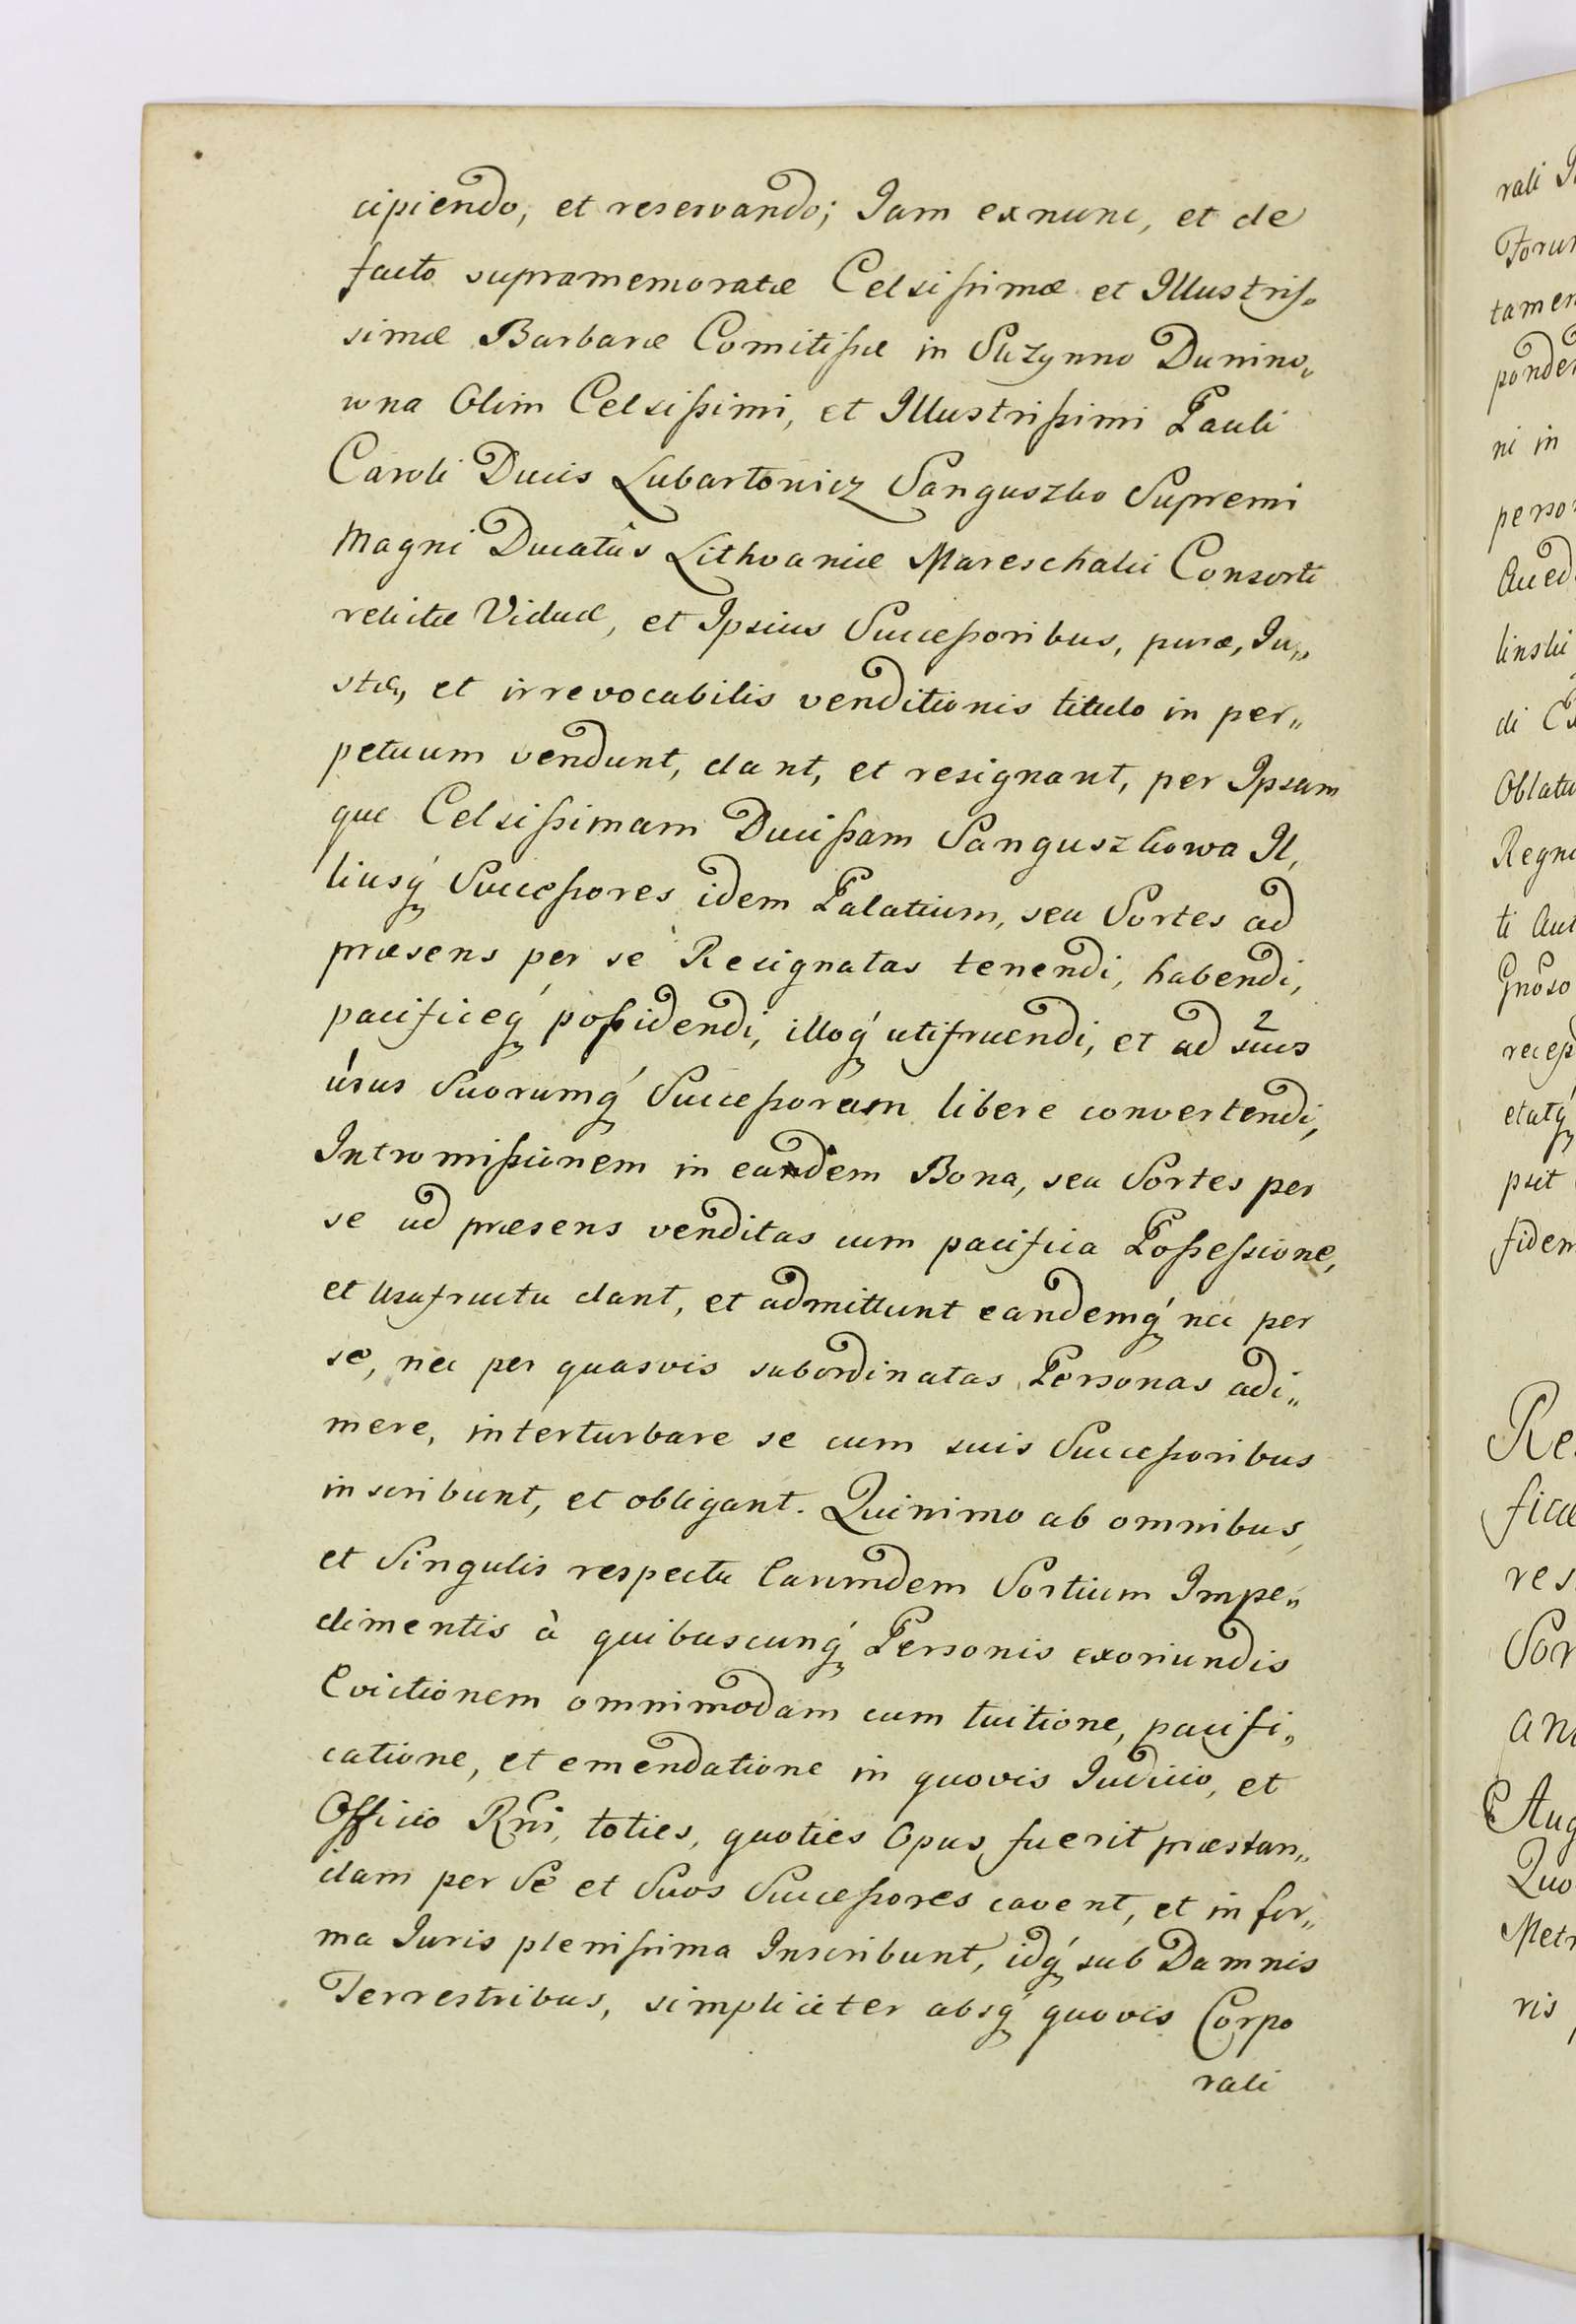 cipiendo, et reservando; Jam exnunc, et de
facto supramemoratæ Celsissimæ et Illustris„
simæ Barbaræ Comitissæ in Skrzynno Dunino„
wna Olim Celsissimi, et Illustrissimi Pauli
Caroli Ducis Lubartowicz Sanguszko Supremi
Magni Ducatûs Lithvaniæ Mareschalci Consorti
relictæ Viduæ, et Ipsius Successoribus, puræ, Ju„
stæ, et irrevocabilis venditionis titulo in per„
petuum vendunt, dant, et resignant, per Ipsam
que Celsissimam Ducissam Sanguszkowa Il„
liusq́ Successores idem Palatium, seu Sortes ad
præsens per se Resignatas tenendi, habendi,
pacificeq́ possidendi, illoq́ utifruendi, et ad suos
usus Suorumq́ Successorum libere convertendi,
Intromissionem in eandem Bona, seu Sortes per
se ad præsens venditas cum pacifica Possessione,
et Usufructu dant, et admittunt eandemq́ nec per
se, nec per quasvis subordinatas Personas adi„
mere, interturbare se cum suis Successoribus
inscribunt, et obligant. Quinimo ab omnibus,
et Singulis respectu Earumdem Sortium Impe„
dimentis à quibuscunq́ Personis exoriundis
Evictionem omnimodam cum tuitione, pacifi„
catione, et emendatione in quovis Judicio, et
Officio Rñi, toties, quoties Opus fuerit præstan„
dam per Se et Suos Successores cavent, et in for„
ma Juris plenissima Inscribunt, idq́ sub Damnis
Terrestribus, simpliciter absq́ quovis Corpo
rali
rali
tamen
ni in
linski
di
Oblatu
Regni
recep
etatq́
psit
fidem
Re
res
Sor
Aug
Quo
Metr
ris